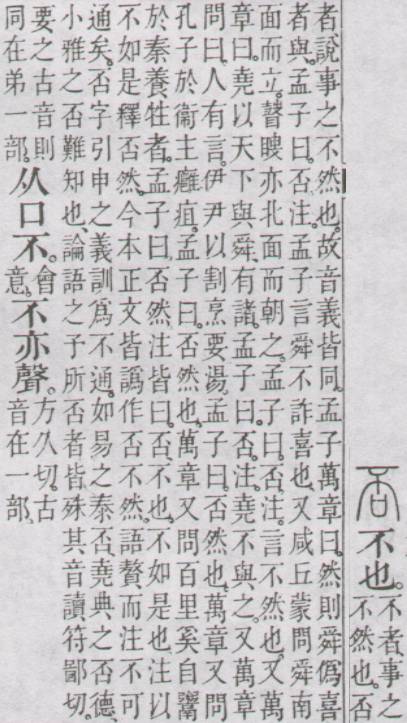 否 不也。不者事之不然也。否
者、說事之不然也。故音義皆同。孟子萬章曰。然則舜僞喜
者與。孟子曰。否。注。孟子言舜不詐喜也。又咸丘蒙問舜南
面而立。瞽瞍亦北面而朝之。孟子曰。否。注。言不然也。又萬
章曰。堯以天下與舜。有諸。孟子曰。否。注。堯不與之。又萬章
問曰。人有言。伊尹以割烹要湯。孟子曰。否然也。萬章又問
孔子於衞主癰疽。孟子曰。否然也。萬章又問百里奚自鬻
於秦養牲者。孟子曰。否然。注皆曰。否、不也。不如是也。注以
不如是釋否然。今本正文皆譌作否不然。語贅而注不可
通矣。否字引申之義訓爲不通。如易之泰否、堯典之否德、
小雅之否難知也、論語之子所否者皆殊其音。讀符鄙切。
要之古音則同在弟一部。从口不。會意。不亦聲。方久切。古音在一部。